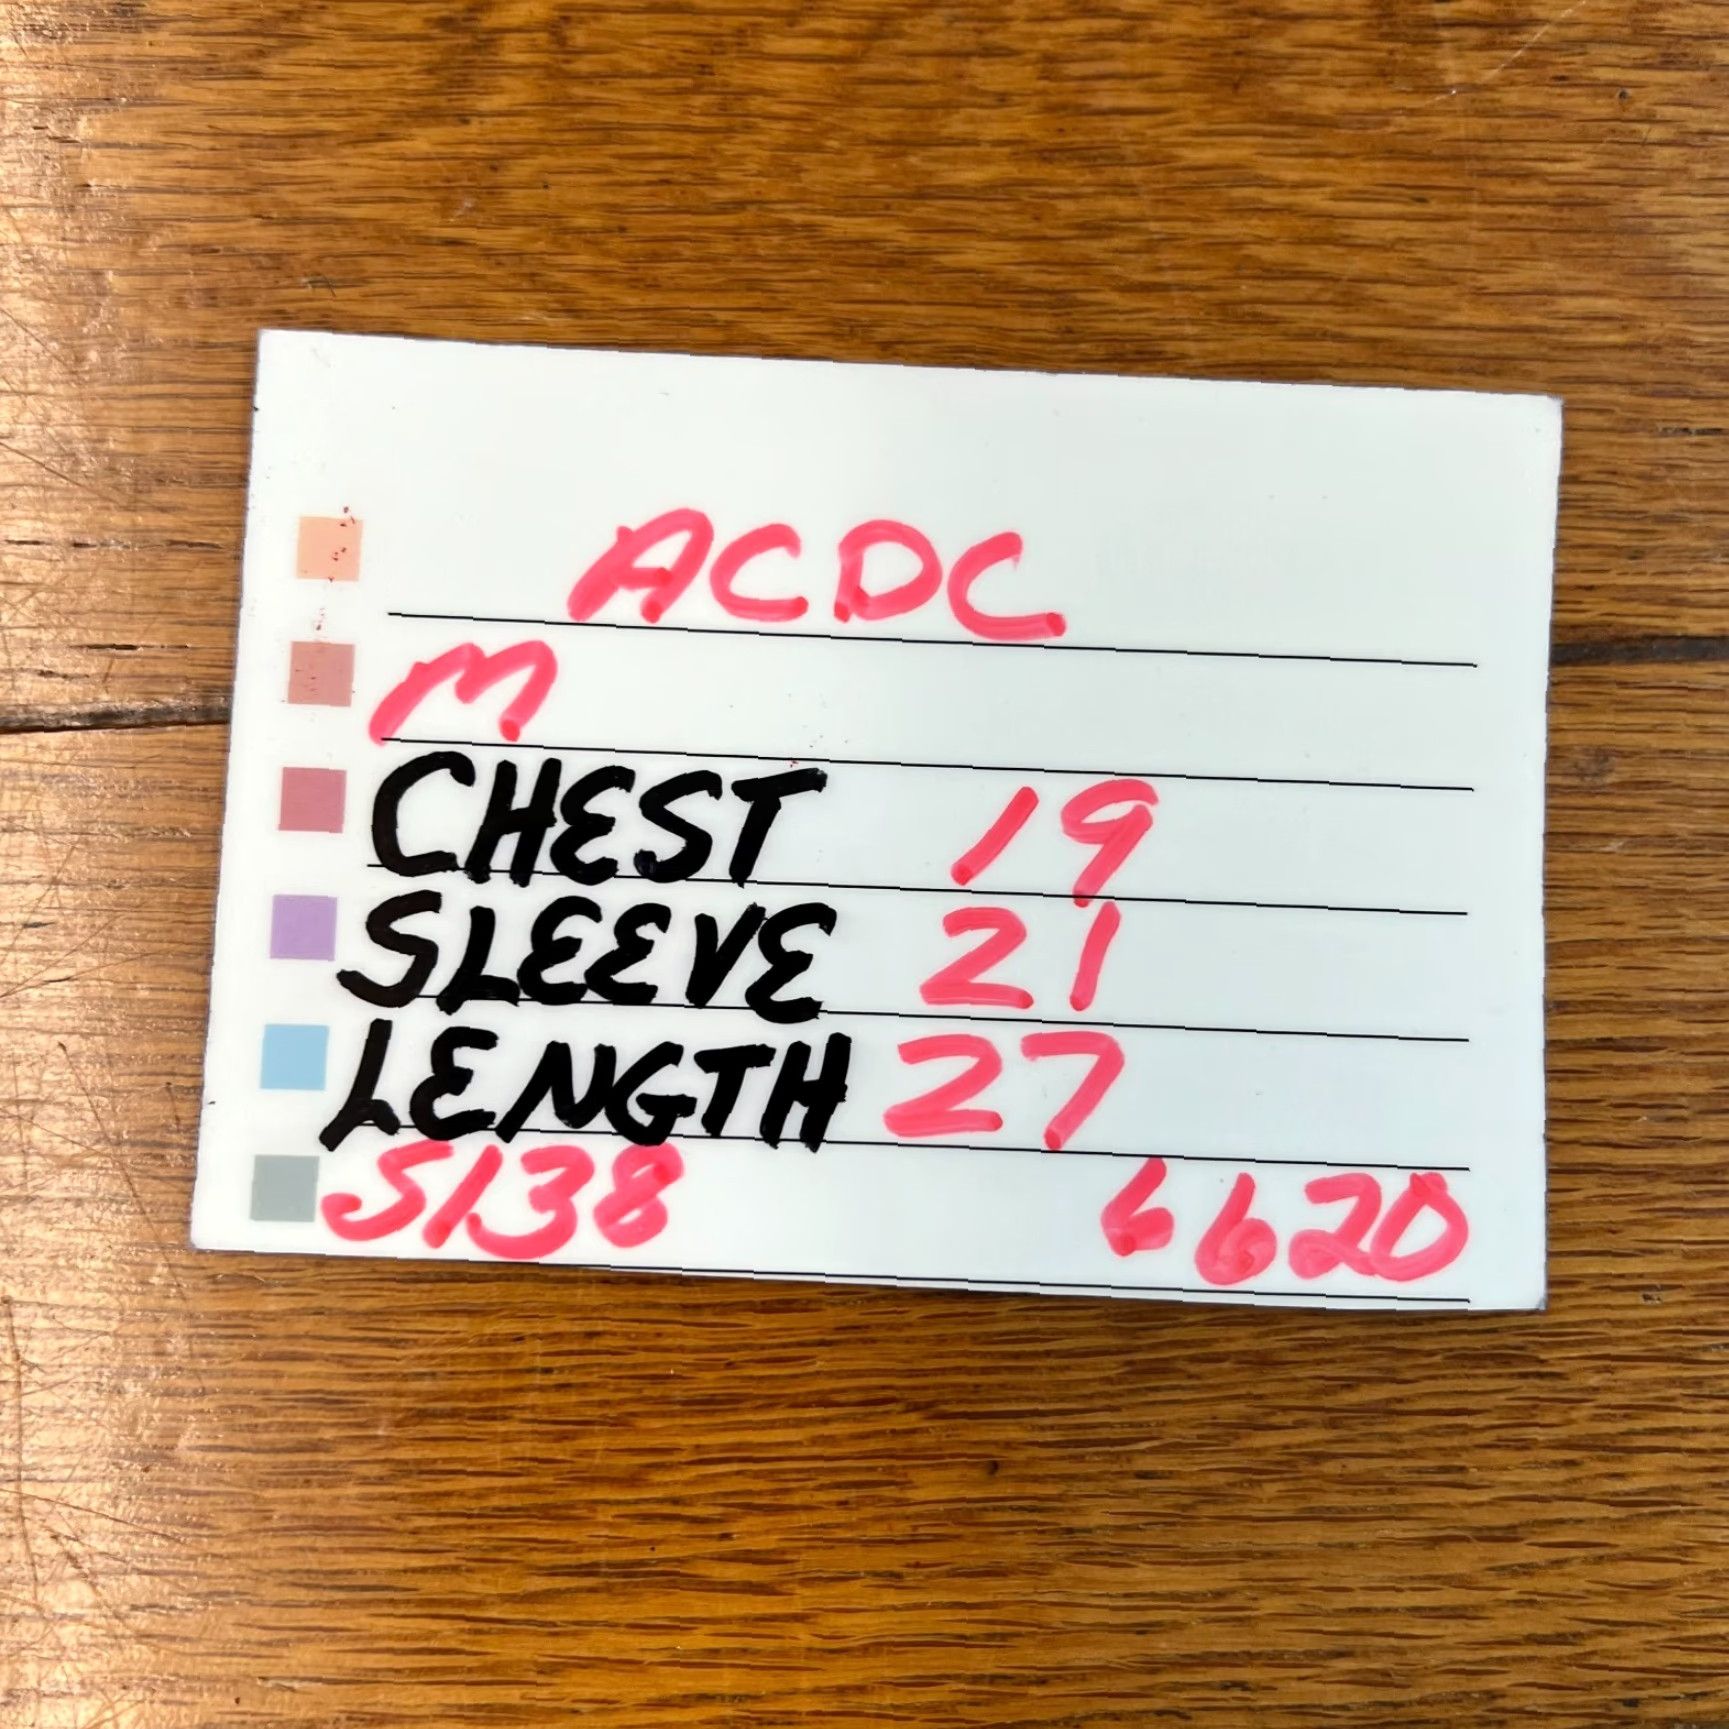 ACDC
M
CHEST 19
SLEEVE 21
LENGTH 27
5138 6620